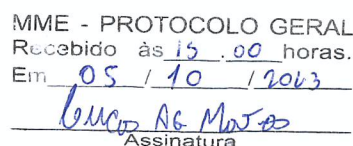 MME - PROTOCOLO GERAL
Recebido às 15 .00 horas.
Em 05 / 10 / 2023
Assinatura